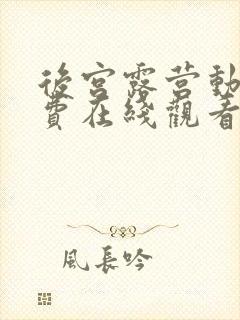 後宮露营動
費在綫觀看
風長吟